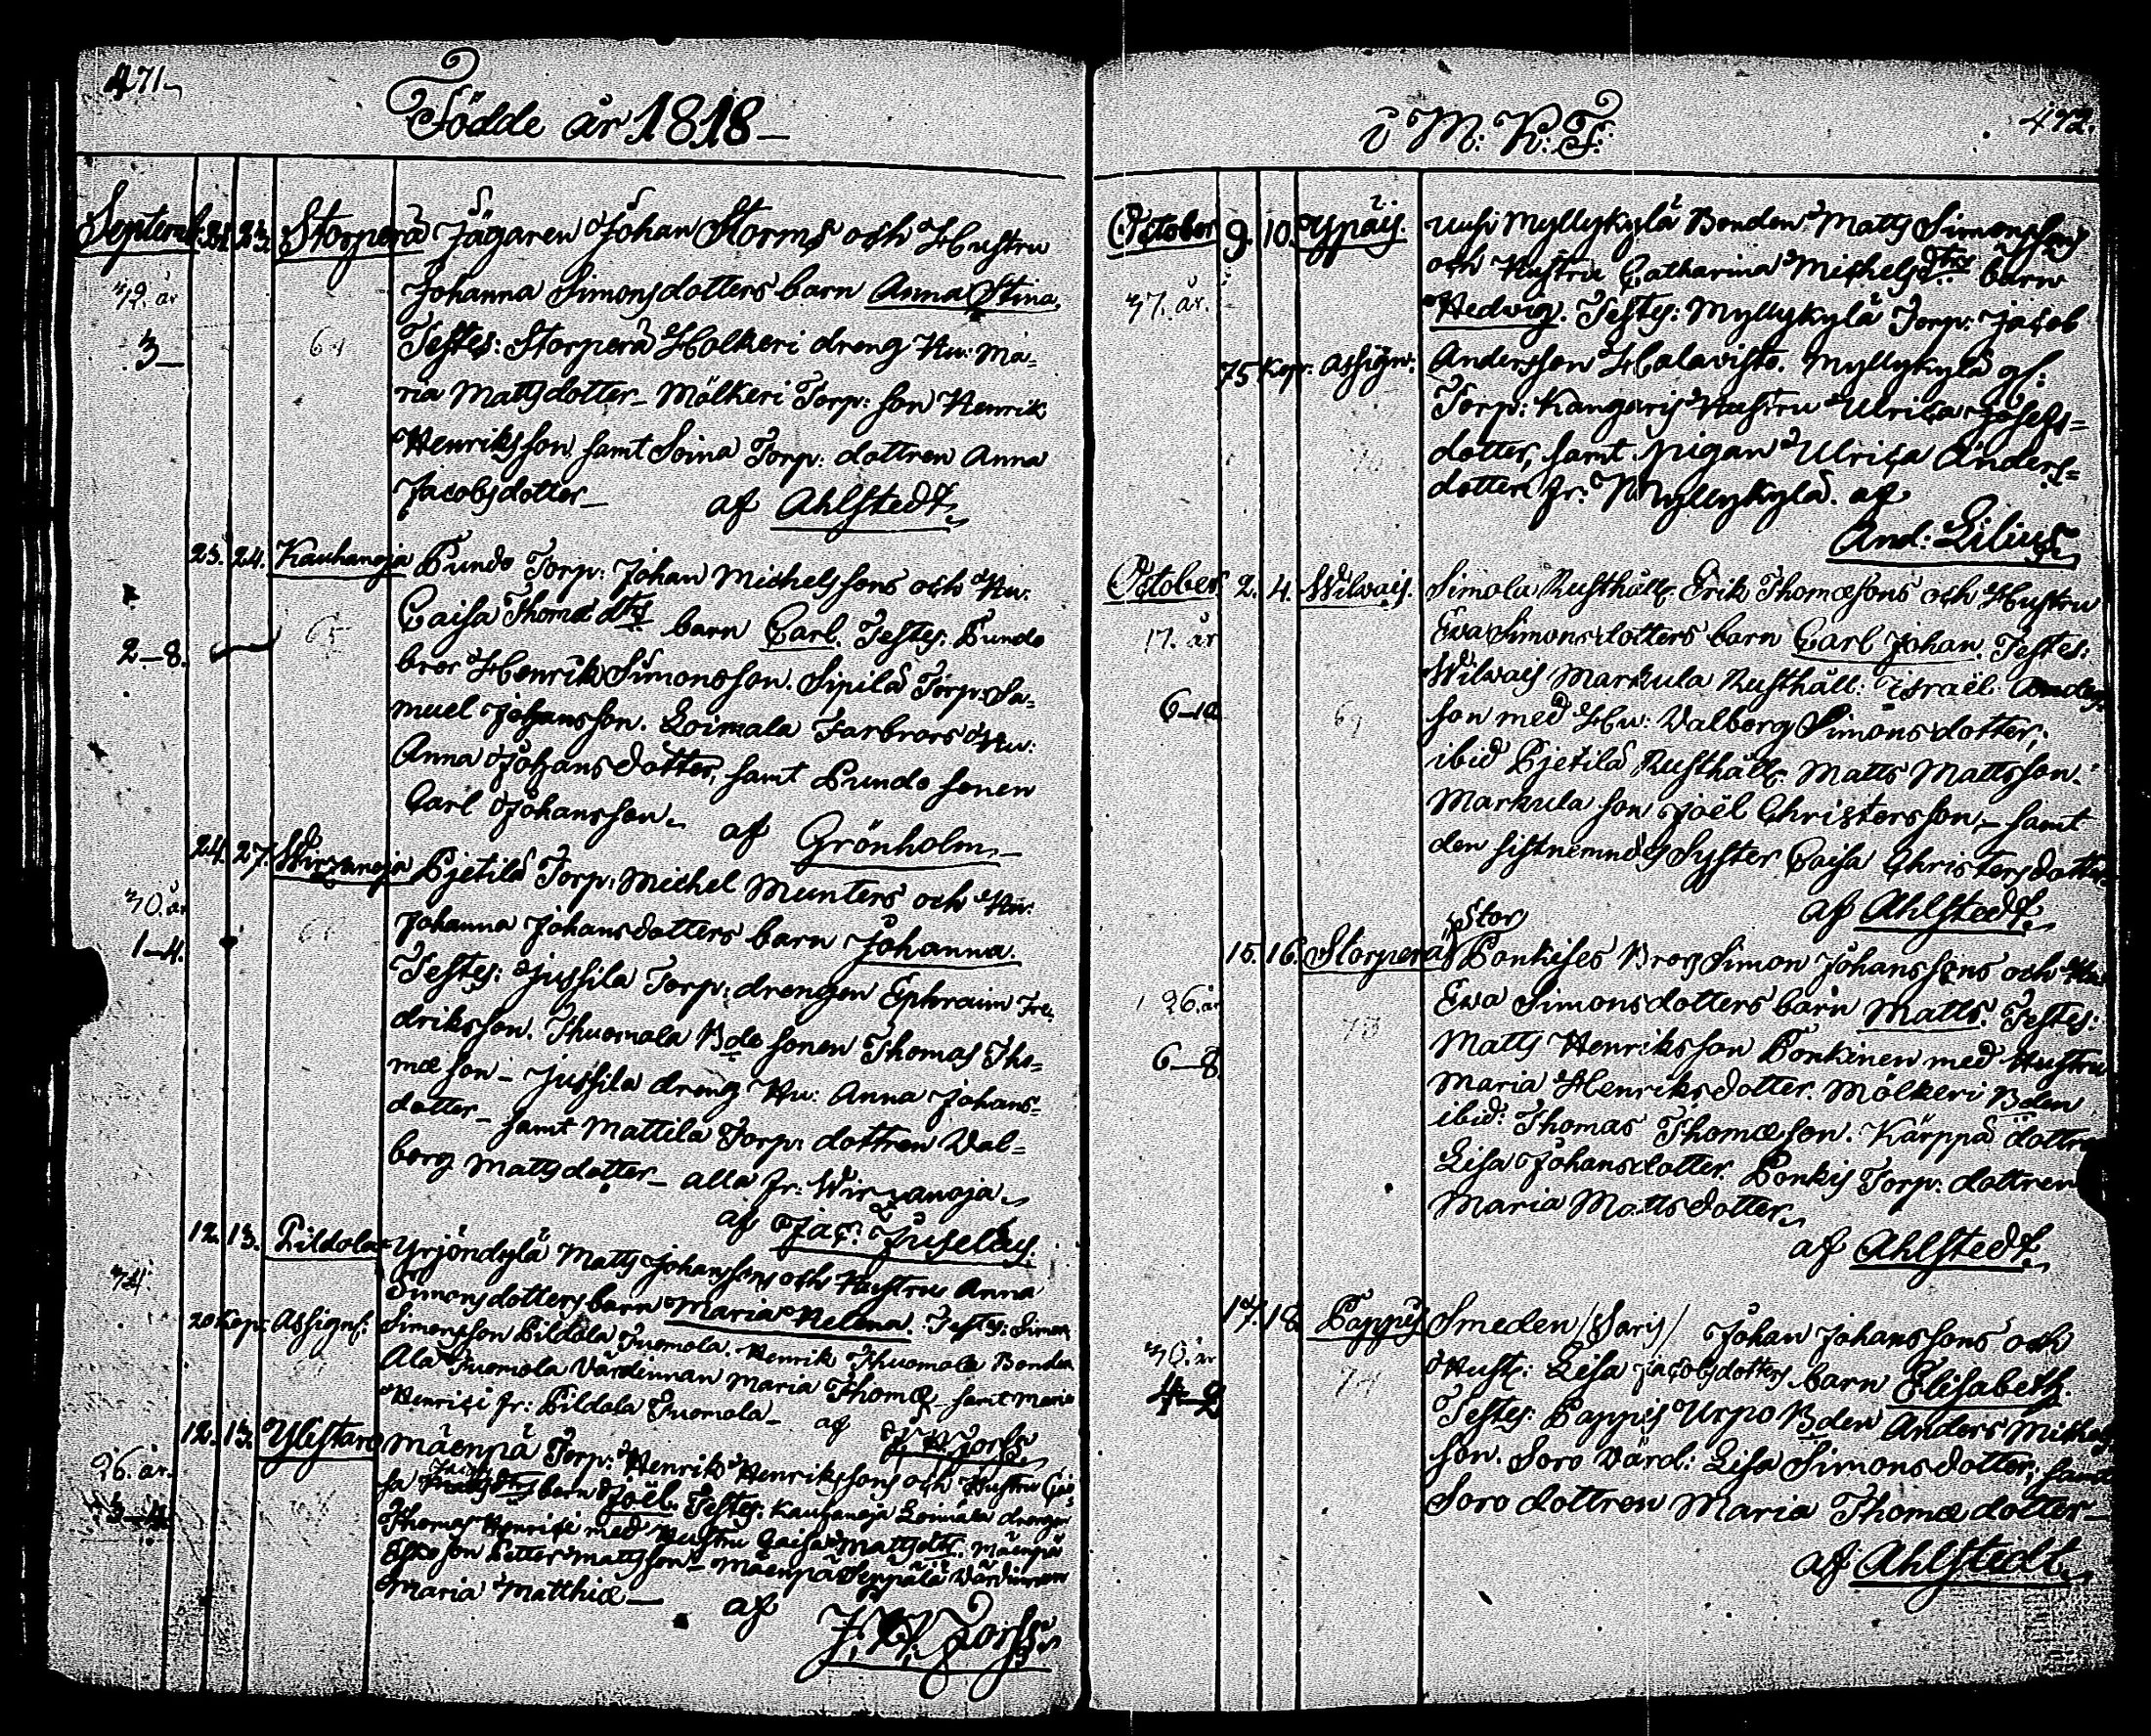 471
Födde år 1818
Septemb. 21. 23. Storperä Jägaren Johan Storms och Hustru
42. år
Johanna Simonsdotters barn Anna Stina.
3
64
Testes: Storperä Holkeri dreng Hu: Ma=
ria Mattsdotter Mölkeri Torp: son Henrik
Henriksson samt Soina Torp: dottren Anna
Jacobsdotter
af Ahlstedt
23. 24. Kauhanoja Pundo Torp: Johan Michelssons och Hu:
Caisa Thomæ dtrs barn Carl. Testes: Pundo
2-8.
65
bror Henrik Simonsson. Sipilä Torp: Sa=
muel Johansson. Loimala Farbrors Hu:
Anna Johansdotter, samt Pundo sonen
Carl Johansson
af Grönholm
24. 27. Wirzanoja Pjetilä Torp: Michel Munters och Hu:
30. år
Johanna Johansdotters barn Johanna.
1-4.
66
Testes: Jussila Torp: drengen Ephraim Fre=
driksson. Thuomala Bde sonen Thomas Tho=
mæson Jussila dreng Hu: Anna Johans=
dotter samt Mattila Torp: dottren Wal=
borg Mattsdotter alla fr: Wirzanoja
af Jac: Juselius.
12. 13. Pildola Yrjöndylä Matts Johanssons och Hustru Anna
34.
Simonsdotters barn Maria Helena. Testes: Simon
20 kop: Assign: Simonsson Pildola Tuomola. Henrik Thuomola Bonden
Ala Tuomola Värdinnan Maria Thomæ samt Maria
Henrici fr: Pildola Tuomola
af
12. 13. Ylistaro Mäenpä Torp: Henrik Henrikssons och Hustru Cai=
26. år.
sa barn Joël. Testes: Kauhanoja Loimala drengen
3-4
Thomas Henrici med Hustru Caisa Mattsdtr. Mäenpä
son Petter Mattsson Mäenpä Seppälä Värdinnan
Maria Matthiæ
af
472.
i M: K: F:
October 9. 10. Ypäis. Uusi Myllykylä Bonden Matts Simonssons
och Hustru Catharina Michelsdtrs barn
37. år.
Hedwig. Testes: Myllykylä Torp: Jacob
75 kop: assign: Andersson Halavisto. Myllykylä gl:
Torp: Kangaris Hustru Ulrica Josefs=
dotter, samt pigan Ulrica Anders=
dotter fr. Myllykylä. af
And: Lilius
October 2. 4. Wilwais. Simola Rusthåll: Erik Thomæsons och Hustru
17. år
Eva Simonsdotters barn Carl Johan. Testes:
Wilvais Markula Rusthåll: Israël Anders
6-10
69
son med Hu: Valborg Simonsdotter,
ibid Pjetilä Rusthåll: Matts Mattsson.
Markula son Joël Christersson, samt
den sistnemndes Syster Caisa Christersdotter
af Ahlstedt
Stor
15. 16. Storperä Ponkises Brors Simon Johanssons och Hu:
26. år
Eva Simonsdotters barn Matts. Testes:
70
6-8
Matts Henriksson Ponkinen med Hustru
Maria Henriksdotter. Mölkeri Bden
ibid: Thomas Thomæson. Kärppä dottren
Lisa Johansdotter. Ponkis Torp: dottren
Maria Mattsdotter
af Ahlstedt
17. 18. Pappis Smeden /Saris/ Johan Johanssons och
30. år
Hust: Lisa Jacobsdotters barn Elisabeth.
71
4-2
Testes: Pappis Urpo Bden Anders Michels
son. Soro Värd: Lisa Simonsdotter, samt
Soro dottren Maria Thomædotter
af Ahlstedt